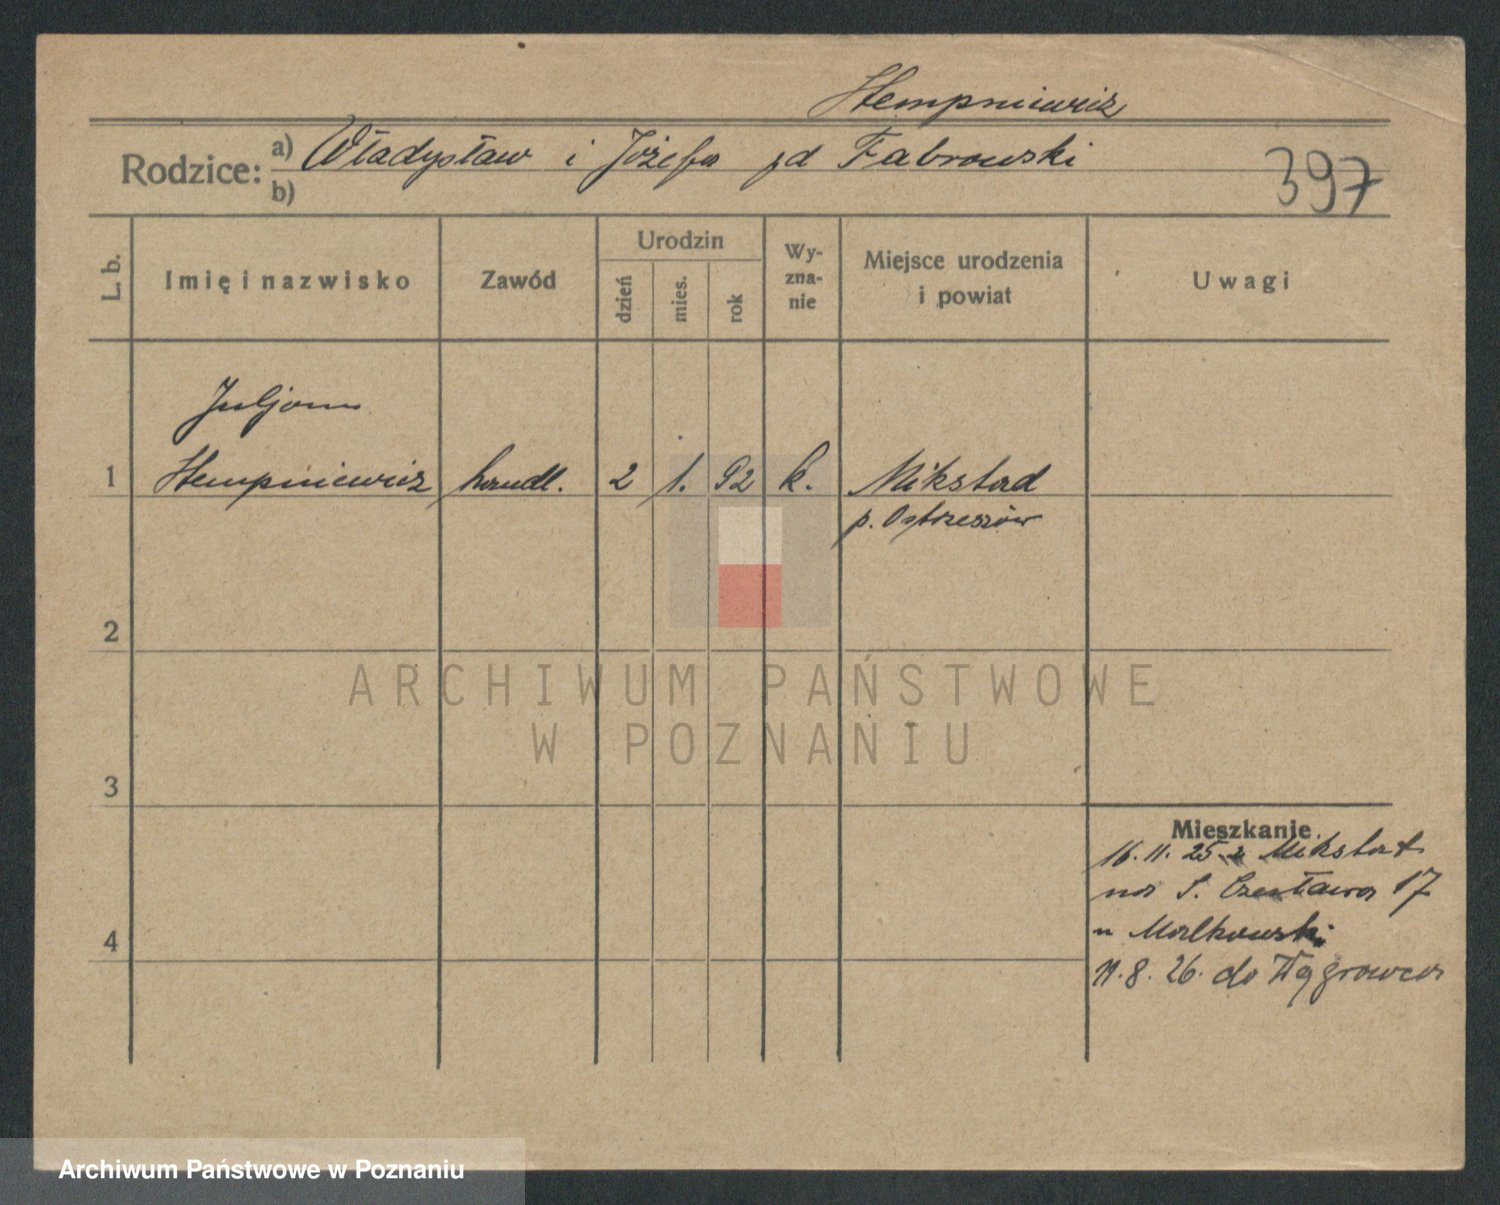 Hempniewicz
Rodzice: a) Władysław i Józefa zd Fabrowski
b)
397
L. b.
Imię i nazwisko
Zawód
Urodzin
dzień
mies.
rok
Wy-
zna-
nie
Miejsce urodzenia
i powiat
Uwagi
Juljan
1 Hempniewicz handl. 2 1. 92 k. Mikstad
p. Ostrzeszów
2
3
4
Mieszkanie
16. 11. 25 z Mikstat
na S. Czesława 17
u Malkowski
11. 8. 26. do Wągrowca
ARCHIWUM PAŃSTWOWE
W POZNANIU
Archiwum Państwowe w Poznaniu